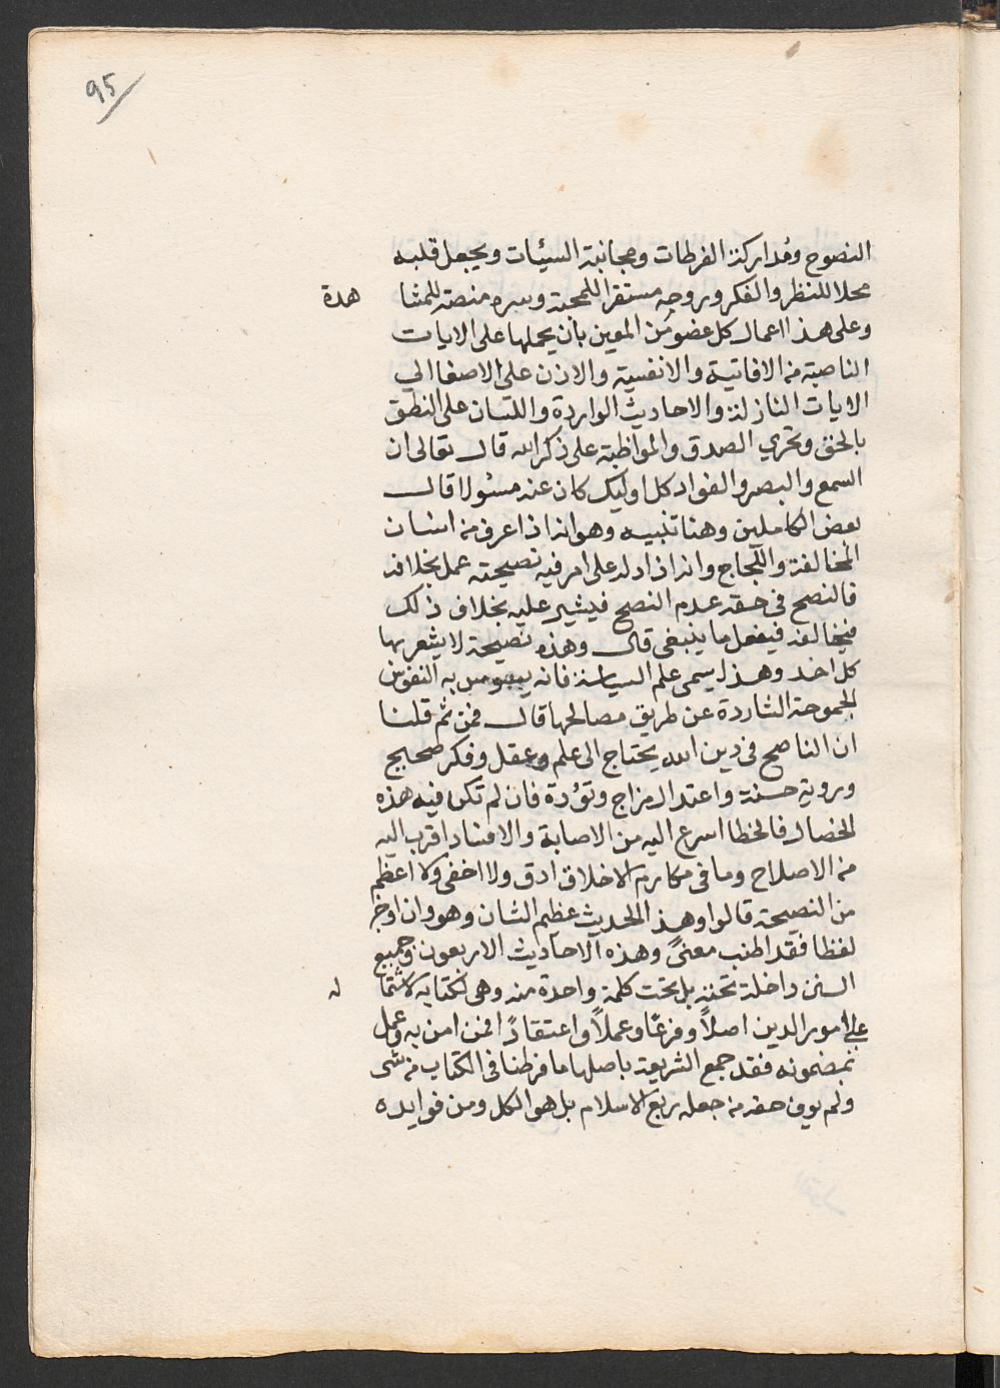 95
النصوح ومداركة الفرطات ومجانبة السيئات ويجعل قلبه
محلا للنظر والفكر وروحه مستقرا للمحبة وسره منصة للمشا هدة
وعلى هذا اعمال كل عضو من المعين بان يحملها على الايات
الناصبة من الافاقية والانفسية والاذن على الاصغا الي
الايات النازلة والاحاديث الواردة واللسان على النطق
بالحق وتحري الصدق والمواظبة على ذكر الله قال تعالى ان
السمع والبصر والفواد كل اوليك كان عنه مسئولا قال
بعض الكاملين وهنا تنبيه وهو انه اذا عرف من انسان
المخالفة واللجاج وانه اذا دله على امر فيه نصيحته عمل بخلافه
فالنصح في حقه عدم النصح فيشير عليه بخلاف ذلك
فيخالفه فيفعل ما ينبغي قال وهذه نصيحة لا يشعر بها
كل احد وهذا يسمى علم السياسة فانه يسوس به النفوس
الجموحة الشاردة عن طريق مصالحها قال فمن ثم قلنا
ان الناصح في دين الله يحتاج الى علم وعقل وفكر صحيح
وروية حسنة واعتدال مزاج وتؤدة فان لم تكن فيه هذه
الخصال فالخطا اسرع اليه من الاصابة والافساد اقرب اليه
من الاصلاح وما في مكارم الاخلاق ادق ولا اخفى ولا اعظم
من النصيحة قالوا وهذا الحديث عظيم الشان وهو وان اوجز
لفظا فقد اطنب معنىً وهذه الاحاديث الاربعون وجميع
السنن داخلة تحته بل تحت كلمة واحدة منه وهي لكتابه لاشتما له
على امور الدين اصلاً وفرعًا وعملاً واعتقادًا فمن امن به وعمل
بمضمونه فقد جمع الشريعة باصلها ما فرطنا في الكتاب من شى
ولم يوف حقه من جعله ربع الاسلام بل هو الكل ومن فوايده